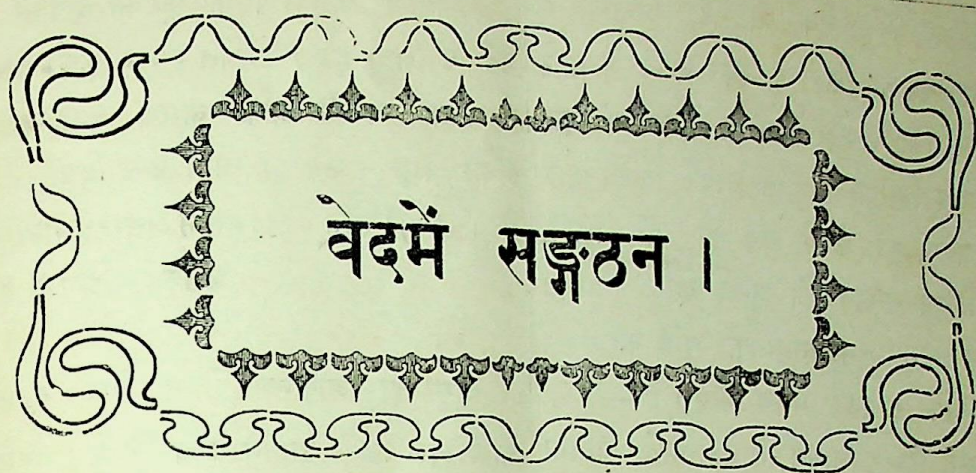 वेदमें सङ्गठन ।